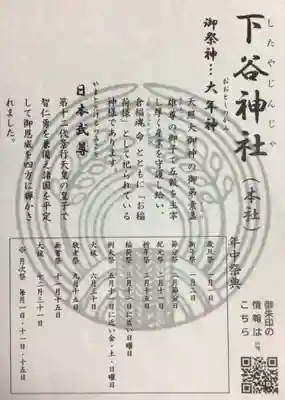 下谷神社（本社）
したやじんじゃ
御祭神…大年神
おおとしのかみ
天照大御神の御弟素戔
雄尊の御子で五穀を主宰
し厚く産業を守護し給い、
倉稲魂命とともに「お稲
荷様」として祀られている
神様であります
日本武尊
やまとたけるのみこと
第十二代景行天皇の皇子で
智仁勇を兼備え諸国を平定
して御恩威を四方に輝かさ
れました。
年中祭典
歳旦祭 一月一日
新年祭 一月二日
節分祭 二月節分日
紀元祭 二月十一日
祈年祭 二月十五日
稲荷祭 三月十二日に近い日曜日
例大祭 五月十一日に近い金・土・日曜日
大祓 六月三十日
敬老祭 九月十五日
新嘗祭 十一月十五日
大祓 十二月三十一日
※月次祭 毎月一日・十一日・十五日
御朱印の
情報は
こちら